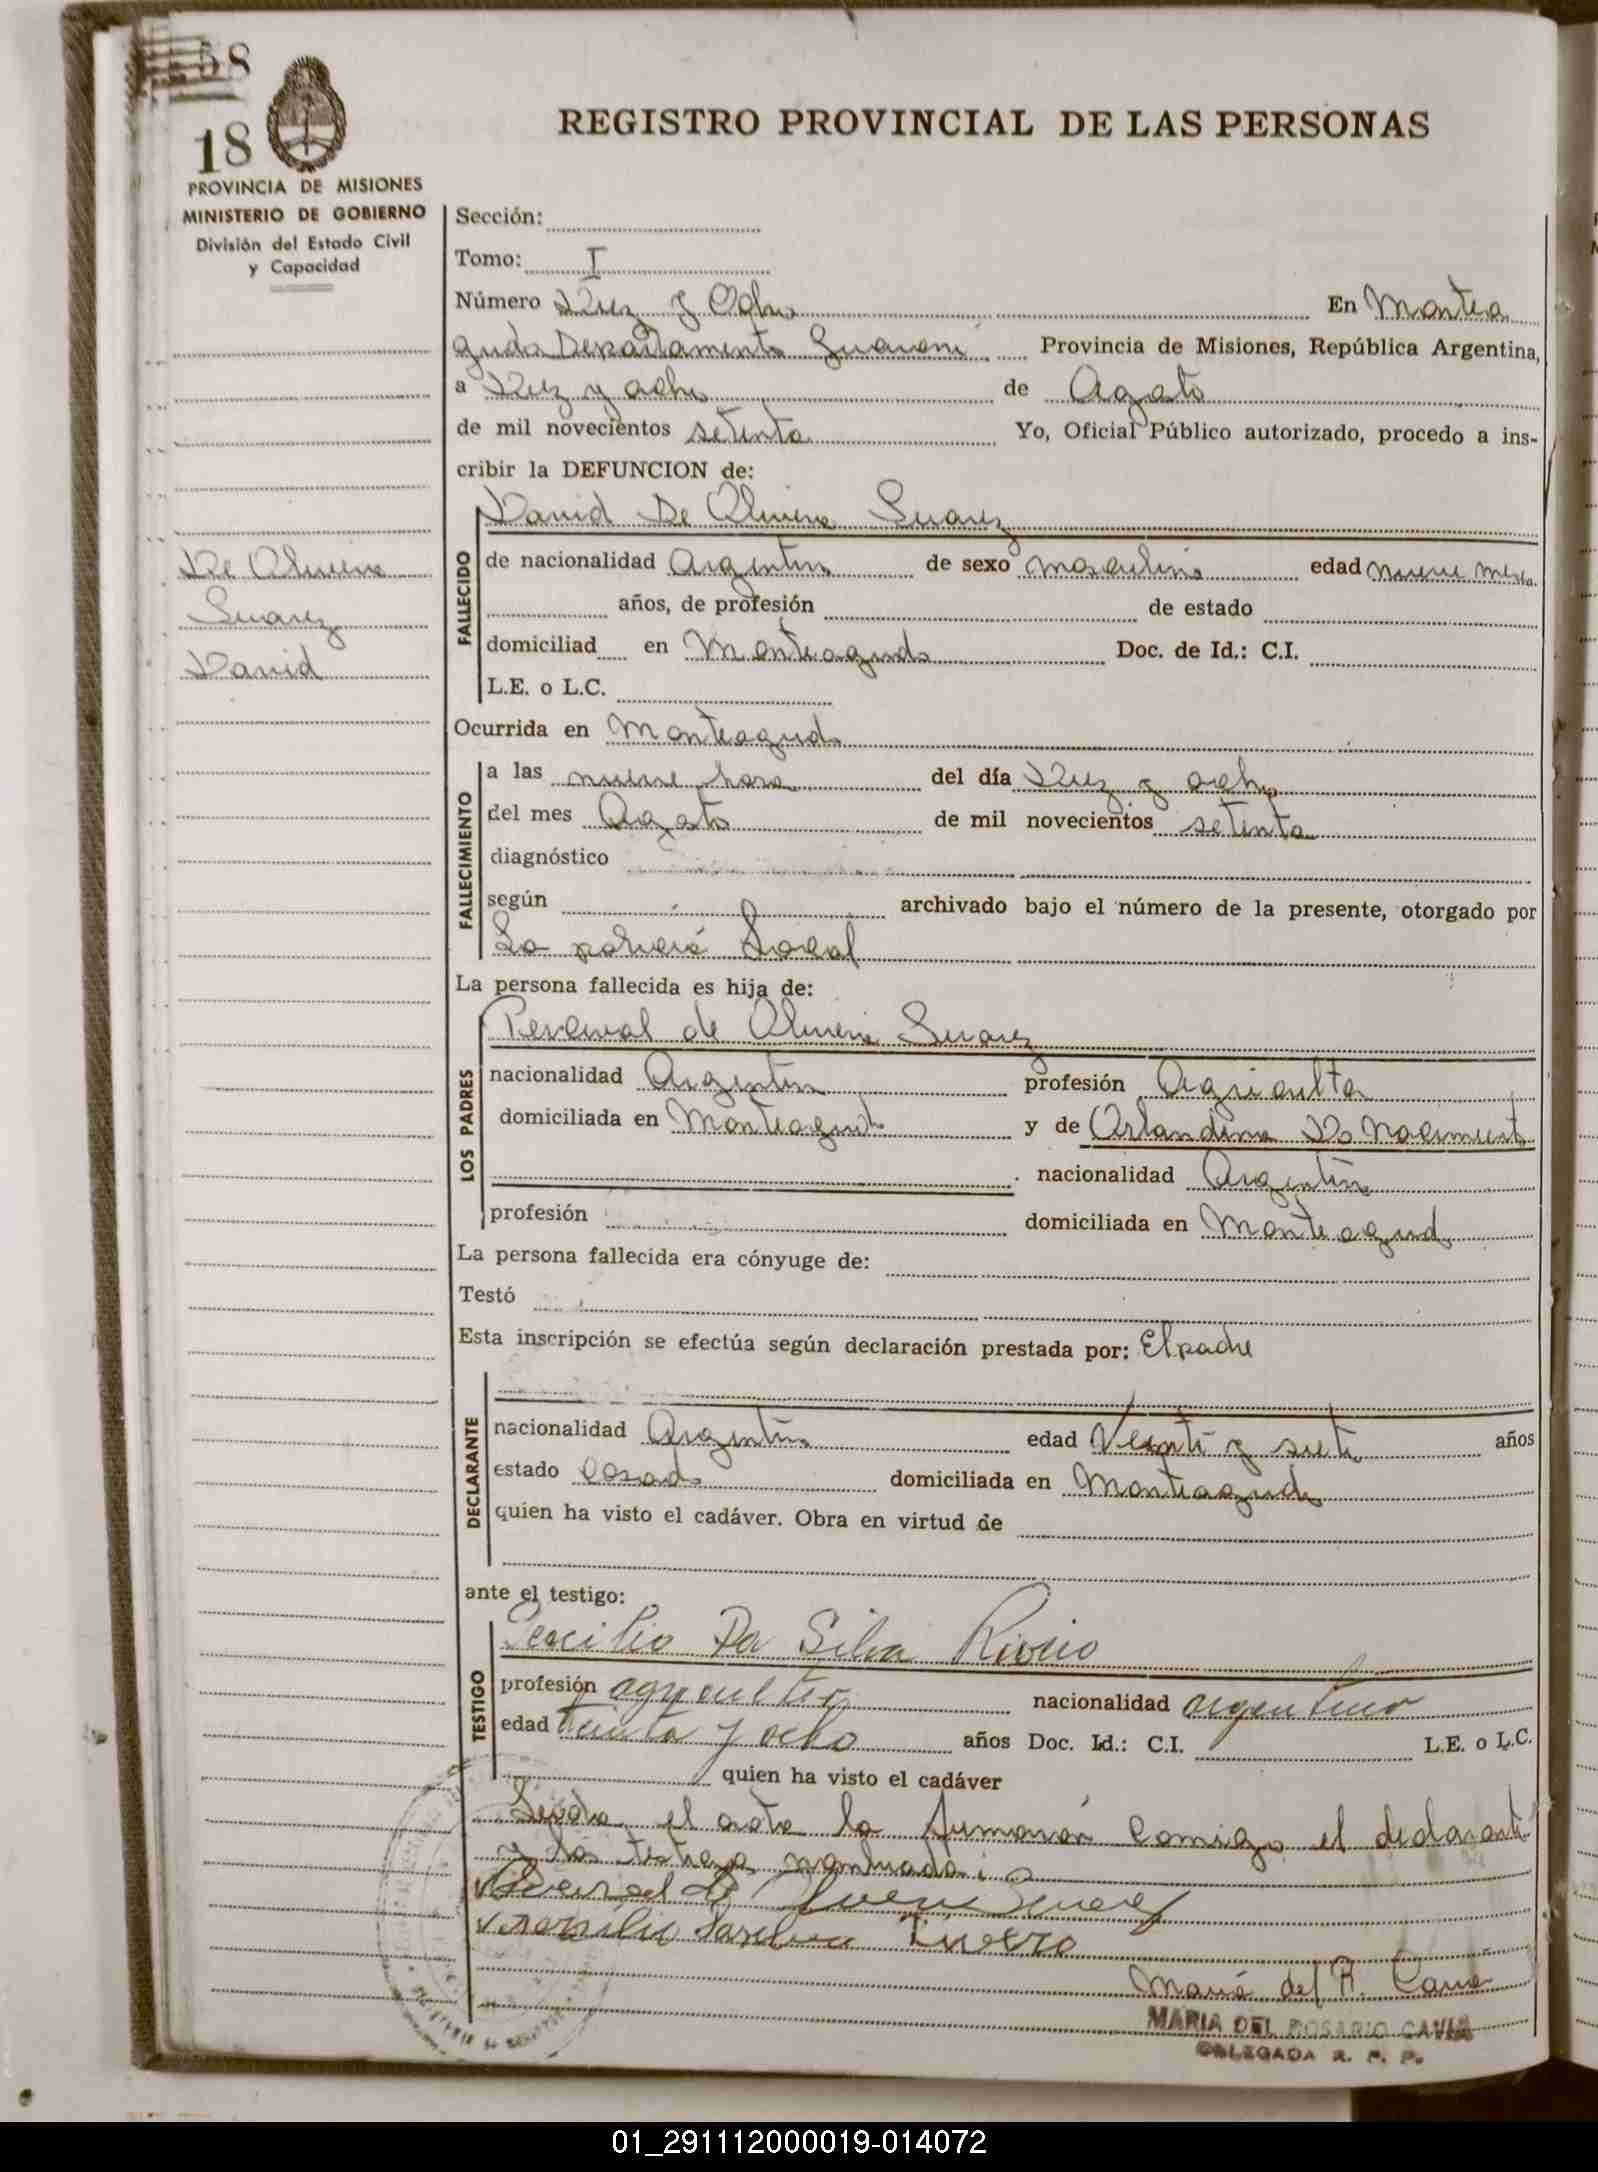 58
18
REGISTRO PROVINCIAL DE LAS PERSONAS
PROVINCIA DE MISIONES
MINISTERIO DE GOBIERNO
División del Estado Civil
y Capacidad
De Olivera
Suarez
David
Sección:
Tomo: I
Número Diez y Ocho En Montea
gudo Departamento Guarani Provincia de Misiones, República Argentina,
a Diez y ocho de Agosto
de mil novecientos setenta Yo, Oficial Público autorizado, procedo a ins-
cribir la DEFUNCION de:
David De Olivera Suarez
FALLECIDO
de nacionalidad Argentina de sexo masculino edad nueve meses
años, de profesión de estado
domiciliad en Monteagudo Doc. de Id.: C.I.
L.E. o L.C.
Ocurrida en Monteagudo
FALLECIMIENTO
a las nueve horas del día Diez y ocho
del mes Agosto de mil novecientos setenta
diagnóstico
según archivado bajo el número de la presente, otorgado por
La policia Local
La persona fallecida es hija de:
LOS PADRES
Percival de Olivera Suarez
nacionalidad Argentina profesión Agricultor
domiciliada en Monteagudo y de Orlandina Do Nacimiento
nacionalidad Argentina
profesión domiciliada en Monteagudo
La persona fallecida era cónyuge de:
Testó
Esta inscripción se efectúa según declaración prestada por: El padre
DECLARANTE
nacionalidad Argentina edad Veinti y siete años
estado Casado domiciliada en Monteagudo
quien ha visto el cadáver. Obra en virtud de
ante el testigo:
TESTIGO
Da Silva
profesión agricultor nacionalidad argentino
edad treinta y ocho años Doc. Id.: C.I. L.E. o L.C.
quien ha visto el cadáver
Leida el acta la firmaron comigo el declarante
y los testigos nombrados
de Olivera Suarez
Maria del R. Cavia
MARIA DEL ROSARIO CAVIA
DELEGADA R. P. P.
01_291112000019-014072